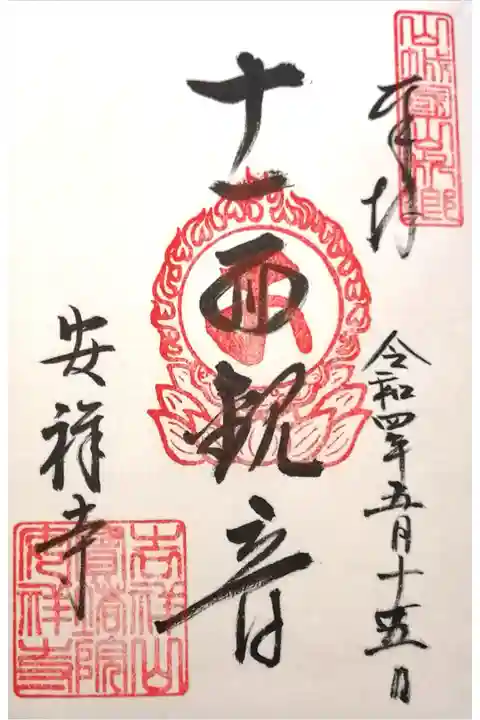 奉拝
令和四年五月十五日
十一面観音
安祥寺
山城国山科郷
吉祥山
寶塔院
安祥寺